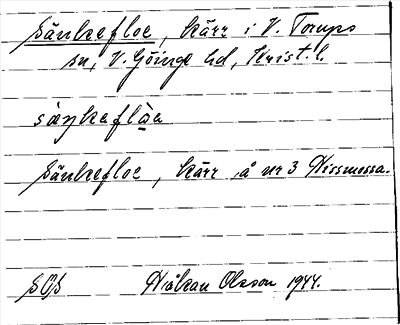 Sänkefloe, kärr i V. Torups
sn, V. Göinge hd, Krist. l.
säŋkeflàa
Sänkefloe, kärr å nr 3 Hissmossa.
SOS Håkan Olsson 1944.